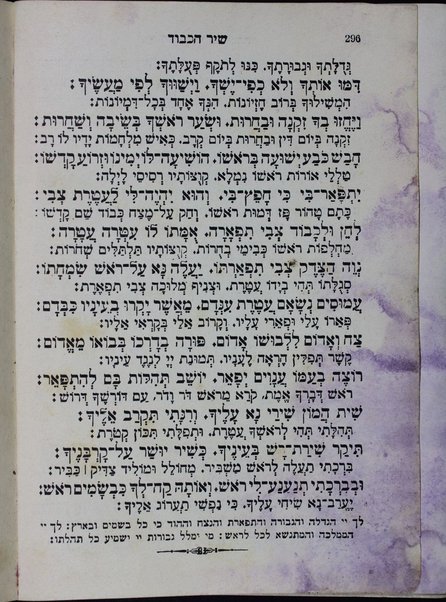 296
שיר הכבוד
גְּדֻלָּתְךָ וּגְבוּרָתֶךָ. כִּנּוּ לְתֹקֶף פְּעֻלָּתֶךָ:
דִּמּוּ אוֹתְךָ וְלֹא כְפִי־יֶשְׁךָ. וַיְשַׁוּוּךָ לְפִי מַעֲשֶׂיךָ:
הִמְשִׁילוּךָ בְּרוֹב חֶזְיוֹנוֹת. הִנְּךָ אֶחָד בְּכָל־דִּמְיוֹנוֹת:
וַיֶּחֱזוּ בְךָ זִקְנָה וּבַחֲרוּת. וּשְׂעַר רֹאשְׁךָ בְּשֵׂיבָה וְשַׁחֲרוּת:
זִקְנָה בְּיוֹם דִּין וּבַחֲרוּת בְּיוֹם קְרָב. כְּאִישׁ מִלְחָמוֹת יָדָיו לוֹ רָב:
חָבַשׁ כֹּבַע יְשׁוּעָה בְּרֹאשׁוֹ. הוֹשִׁיעָה־לּוֹ יְמִינוֹ וּזְרוֹעַ קָדְשׁוֹ:
טַלְלֵי אוֹרוֹת רֹאשׁוֹ נִמְלָא. קְוֻצּוֹתָיו רְסִיסֵי לָיְלָה:
יִתְפָּאֵר־בִּי כִּי חָפֵץ־בִּי. וְהוּא יִהְיֶה־לִּי לַעֲטֶרֶת צְבִי:
כֶּתֶם טָהוֹר פָּז דְּמוּת רֹאשׁוֹ. וְחַק עַל־מֵצַח כְּבוֹד שֵׁם קָדְשׁוֹ:
לְחֵן וּלְכָבוֹד צְבִי תִפְאָרָה. אֻמָּתוֹ לוֹ עִטְּרָה עֲטָרָה:
מַחְלְפוֹת רֹאשׁוֹ כְּבִימֵי בְחֻרוֹת. קְוֻצּוֹתָיו תַּלְתַּלִּים שְׁחֹרוֹת:
נְוֵה הַצֶּדֶק צְבִי תִפְאַרְתּוֹ. יַעֲלֶה נָּא עַל־רֹאשׁ שִׂמְחָתוֹ:
סְגֻלָּתוֹ תְּהִי בְיָדוֹ עֲטֶרֶת. וּצְנִיף מְלוּכָה צְבִי תִפְאֶרֶת:
עֲמוּסִים נְשָׂאָם עֲטֶרֶת עִנְּדָם. מֵאֲשֶׁר יָקְרוּ בְעֵינָיו כִּבְּדָם:
פְּאֵרוֹ עָלַי וּפְאֵרִי עָלָיו. וְקָרוֹב אֵלַי בְּקָרְאִי אֵלָיו:
צַח וְאָדוֹם לִלְבוּשׁוֹ אָדוֹם. פּוּרָה בְּדָרְכוֹ בְּבוֹאוֹ מֵאֱדוֹם:
קֶשֶׁר תְּפִלִּין הֶרְאָה לֶעָנָיו. תְּמוּנַת יְיָ לְנֶגֶד עֵינָיו:
רוֹצֶה בְעַמּוֹ עֲנָוִים יְפָאֵר. יוֹשֵׁב תְּהִלּוֹת בָּם לְהִתְפָּאֵר:
רֹאשׁ דְּבָרְךָ אֱמֶת. קוֹרֵא מֵרֹאשׁ דּוֹר וָדוֹר. עַם דּוֹרֶשְׁךָ דְּרוֹשׁ:
שִׁית הֲמוֹן שִׁירַי נָא עָלֶיךָ. וְרִנָּתִי תִּקְרַב אֵלֶיךָ:
תְּהִלָּתִי תְּהִי לְרֹאשְׁךָ עֲטֶרֶת. וּתְפִלָּתִי תִּכּוֹן קְטֹרֶת:
תִּיקַר שִׁירַת־רָשׁ בְּעֵינֶיךָ. כְּשִׁיר יוּשַׁר עַל־קָרְבָּנֶיךָ:
בִּרְכָתִי תַעֲלֶה לְרֹאשׁ מַשְׁבִּיר. מְחוֹלֵל וּמוֹלִיד צַדִּיק | כַּבִּיר:
וּבְבִרְכָתִי תְנַעֲנַע־לִי רֹאשׁ. וְאוֹתָהּ קַח־לְךָ כִּבְשָׂמִים רֹאשׁ:
יֶעֱרַב־נָא שִׂיחִי עָלֶיךָ. כִּי נַפְשִׁי תַעֲרוֹג אֵלֶיךָ:
לך יי הגדלה והגבורה והתפארת והנצח וההוד כי כל בשמים ובארץ: לך יי
הממלכה והמתנשא לכל לראש: מי ימלל גבורות יי ישמיע כל תהלתו: